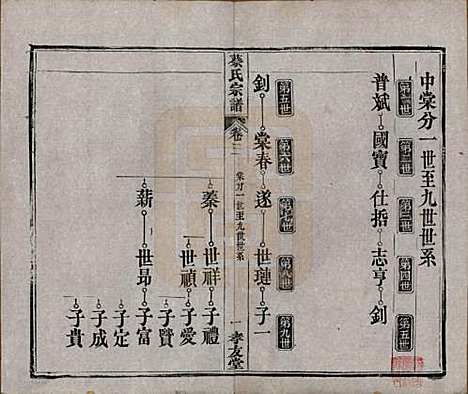 中棠分一世至九世世系
第一世 第二世 第三世 第四世 第五世
普斌 國寶 仕哲 志亨 釗
第五世 第六世 第七世 第八世 第九世
釗 棠春 遂 世璉 子一
蔡氏宗譜
卷二
棠分一世至九世世系
一
孝友堂
蓁 世祥 子禮
世禎 子愛
子贊
薪 世昂 子富
子定
子成
子貴